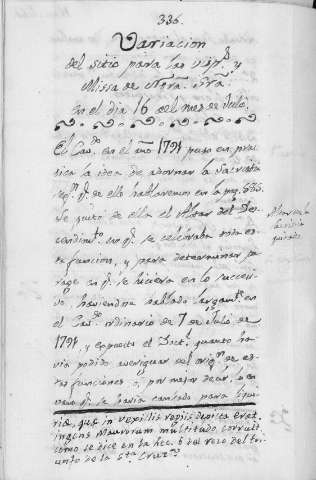 336.
Variacion
del sitio para las visp.s y
Missa de Ntra. Sra.
en el dia 16 del mes de Julio.
El Cav.do en el año 1791 puso en prac-
tica la idea de adornar la Sacristia
seg.n q.e de ello hablaremos en la pag. 535.
Se quitó de ella el Altar del Des-
cendim.to en q.e se celebraba esta es-
ta funcion, y para determinar pa-
rage en q.e se hiciera en lo succesi-
vo, haviendose hablado largam.te en
el Cav.do ordinario de 7 de Julio de
1791, y expuesto el Doct.l quanto ha-
via podido averiguar del orig.n de es-
tas funciones, o, por mejor decir, la
q.e se havia cantado para
riæ, quæ in vexillis regiis depicta erat,
ingens Maurorum multitudo corruit,
como se dice en la lec. 6 del rezo del tri-
unfo de la S.ta Cruz.
Altar de la
sacristia
quitado